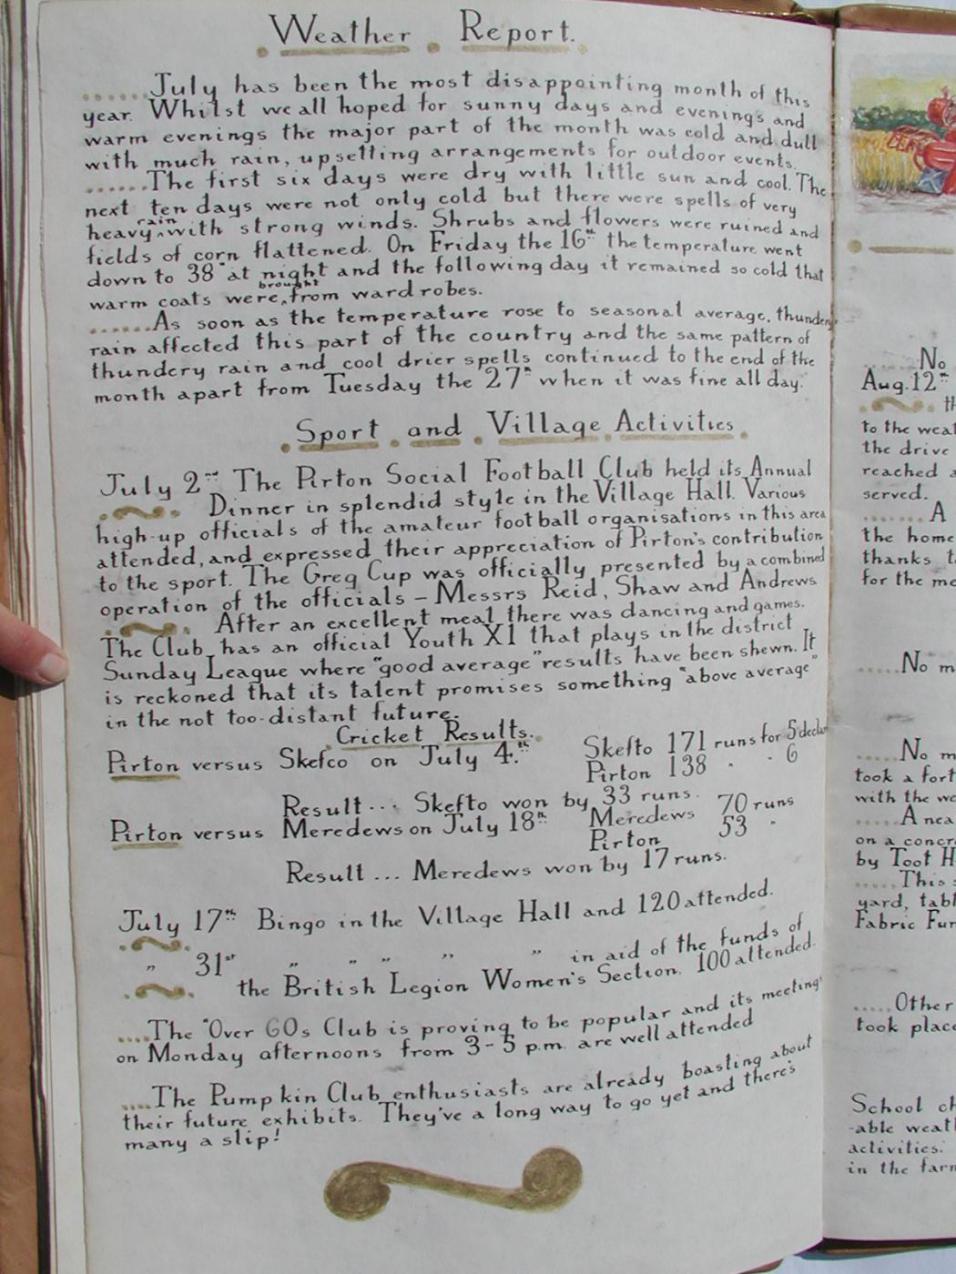 Weather Report.
......July has been the most disappointing month of this
year. Whilst we all hoped for sunny days and evenings and
warm evenings the major part of the month was cold and dull
with much rain, upsetting arrangements for outdoor events.
......The first six days were dry with little sun and cool. The
next ten days were not only cold but there were spells of very
heavy rain with strong winds. Shrubs and flowers were ruined and
fields of corn flattened. On Friday the 16th the temperature went
down to 38° at night and the following day it remained so cold that
warm coats were brought from wardrobes.
......As soon as the temperature rose to seasonal average, thundery
rain affected this part of the country and the same pattern of
thundery rain and cool drier spells continued to the end of the
month apart from Tuesday the 27th when it was fine all day.
Sport and Village Activities.
July 2nd The Pirton Social Football Club held its Annual
Dinner in splendid style in the Village Hall. Various
high-up officials of the amateur football organisations in this area
attended, and expressed their appreciation of Pirton's contribution
to the sport. The Greg Cup was officially presented by a combined
operation of the officials – Messrs Reid, Shaw and Andrews
After an excellent meal there was dancing and games.
The Club has an official Youth X1 that plays in the district
Sunday League where "good average" results have been shewn. It
is reckoned that its talent promises something "above average"
in the not too-distant future.
Cricket Results.
Pirton versus Skefco on July 4th. Skefto 171 runs for 5 declar
Pirton 138 " " 6
Result... Skefto won by 33 runs.
Pirton versus Meredews on July 18th Meredews 70 runs
Pirton 53 "
Result ... Meredews won by 17 runs.
July 17th Bingo in the Village Hall and 120 attended.
" 31st " " " " " in aid of the funds of
the British Legion Women's Section. 100 attended.
....The "Over 60s Club is proving to be popular and its meetings
on Monday afternoons from 3-5 p.m. are well attended
....The Pumpkin Club enthusiasts are already boasting about
their future exhibits. They've a long way to go yet and there's
many a slip!
No
Aug. 12th
th
to the weat
the drive
reached a
served.
.......A
the home
thanks t
for the me
.....No m
.....No m
took a fort
with the we
.....A nea
on a concr
by Toot H
.....This s
yard, tabl
Fabric Fun
.....Other
took place
School ch
-able weat
activities.
in the farm